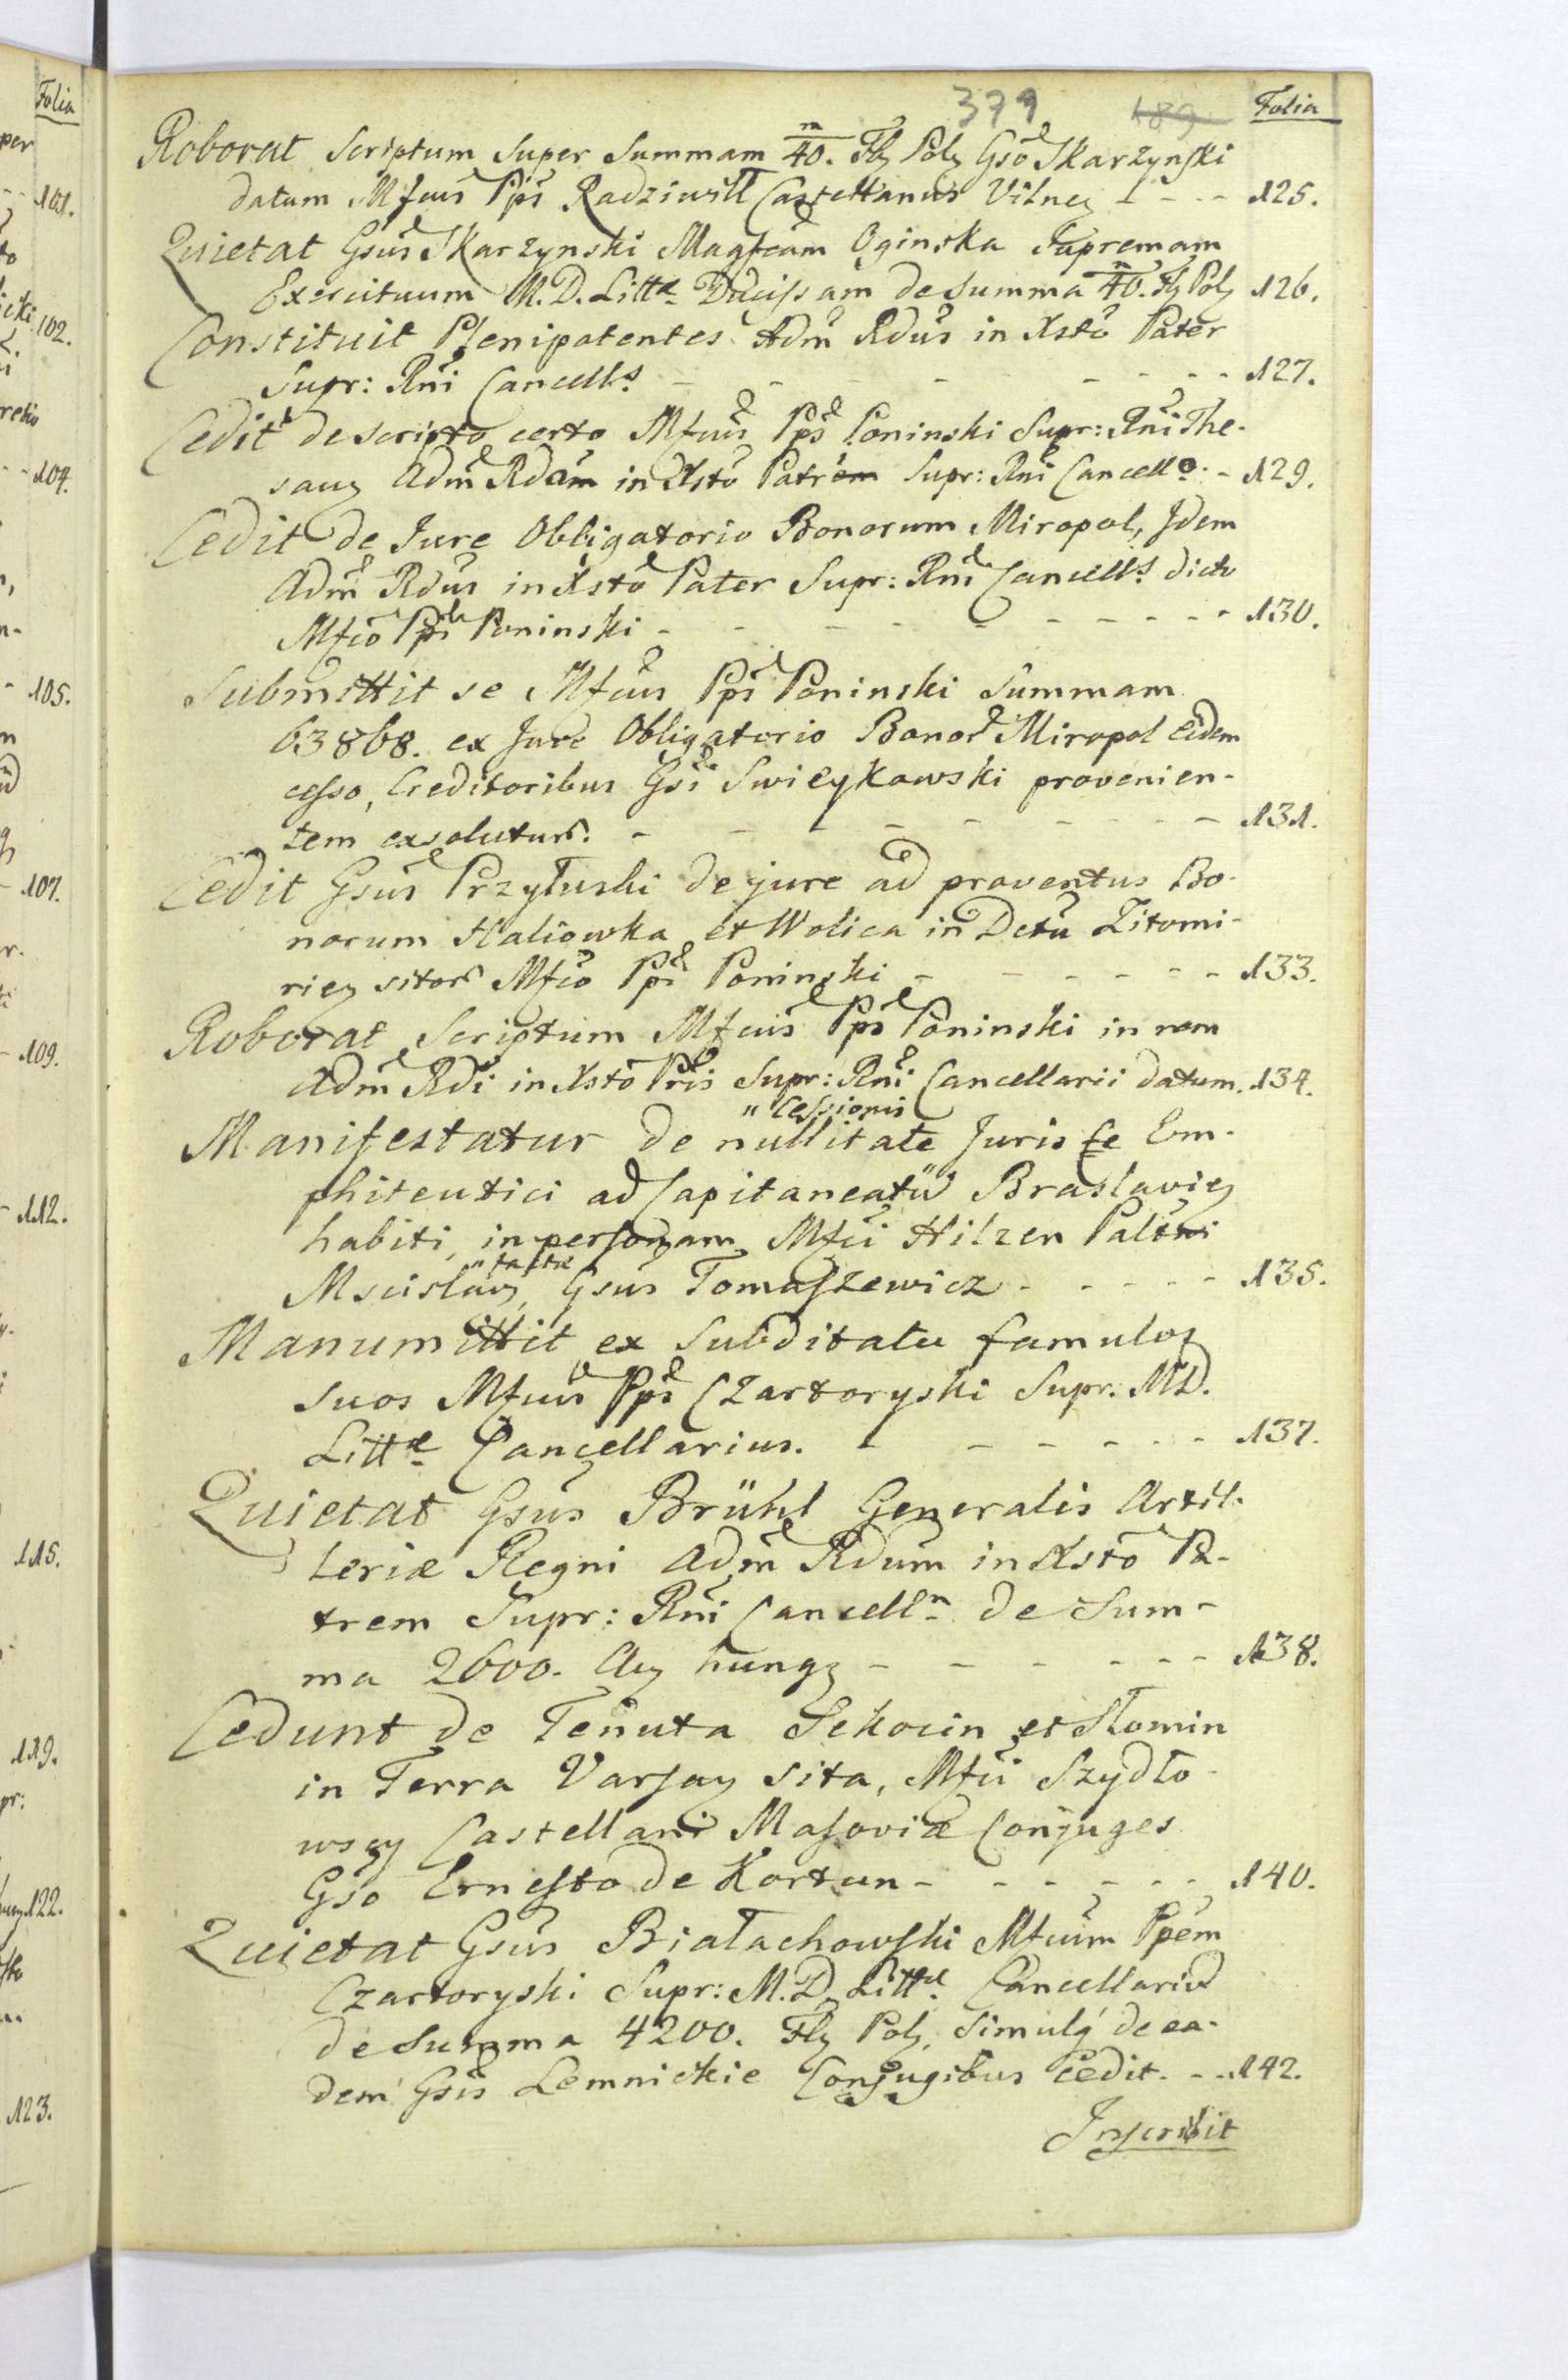 379 189
Folia
Roborat Scriptum Super Summam m/40. Fly Poly Gsõ Skarzynski
datum Mfcus Pps Radziwiłł Castellanus Vilney - - - 125.
Quietat Gsus Skarzynski Magfcam Oginska Supremam
Exercituum M. D. Littæ Ducissam de Summa m/40. Fly Poly 126.
Constituit Plenipotentes Adm Rdus in Xsto Pater
Supr: Rni Cancells - - - - - - - 127.
Cedit de Scripto certo Mfcus Pps Poninski Supr: Rni The-
saury Adm Rdam in Xsto Patrem Supr: Rni Cancello. - 129.
Cedit de Jure Obligatorio Bonorum Miropol, Idem
Adm Rdus in Xsto Pater Supr: Rni Cancells dicto
Mfco Ppi Poninski - - - - - - - 130.
Submittit se Mfcus Pps Poninski Summam
63868. ex Jure Obligatorio Bonor Miropol eidem
cesso, Creditoribus Gsi Swieykowski provenien-
tem exsolutur. - - - - - - - 131.
Cedit Gsus Przyłuski de jure ad proventus Bo-
norum Haliowka et Wolica in Dctu Zitomi-
riey sitor Mfco Ppi Poninski - - - - - 133.
Roborat Scriptum Mfcus Pps Poninski in rem
Adm Rdi in Xsto Pris Supr: Rni Cancellarii datum. 134.
" Cessionis
Manifestatur de nullitate Juris Ce Em-
phiteutici ad Capitaneatũ Braslaviey
habiti, in personam Mfci Hilzen Paltni
" factæ
Mscislavy, Gsus Tomaszewicz - - - - - 135.
Manumittit ex Subditatu famulos
suos Mfcus Pps Czartoryski Supr. M.D.
Littæ Cancellarius. - - - - - - 137.
Quietat Gsus Brühl Generalis Artil-
leriæ Regni Adm Rdum in Xsto Pa-
trem Supr: Rni Cancelln de Sum-
ma 2600. Auy hungy - - - - - - 138.
Cedunt de Tenuta Sekocin et Słomin
in Terra Varsay sita, Mfci Szydło-
wscy Castellani Masoviæ Conjuges
Gso Ernesto de Kortun - - - - - - 140.
Quietat Gsus Białachowski Mfcum Ppem
Czartoryski Supr: M. D. Littæ Cancellariũ
de Summa 4200. Fly Poly, simulq de ea-
dem Gsis Lemnickie Conjugibus Cedit. - - 142.
Inscribit